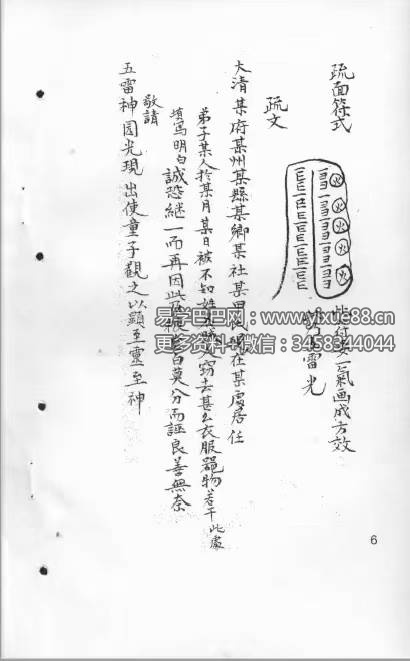 疏面符式
火
火
火
火
火
此符要一氣画成方效
雷光
疏文
大清某府某州某縣某鄉某社某甲現在某處居住
弟子某人於某月某日被不知姓名賊人窃去甚么衣服器物若干此處
填写明白誠恐継一而再因此皂白莫分而誣良善無奈
敬請
五雷神圆光現出使童子觀之以顯至靈至神
易学巴巴网：www.yixue88.cn
更多资料+微信：3458344044
6